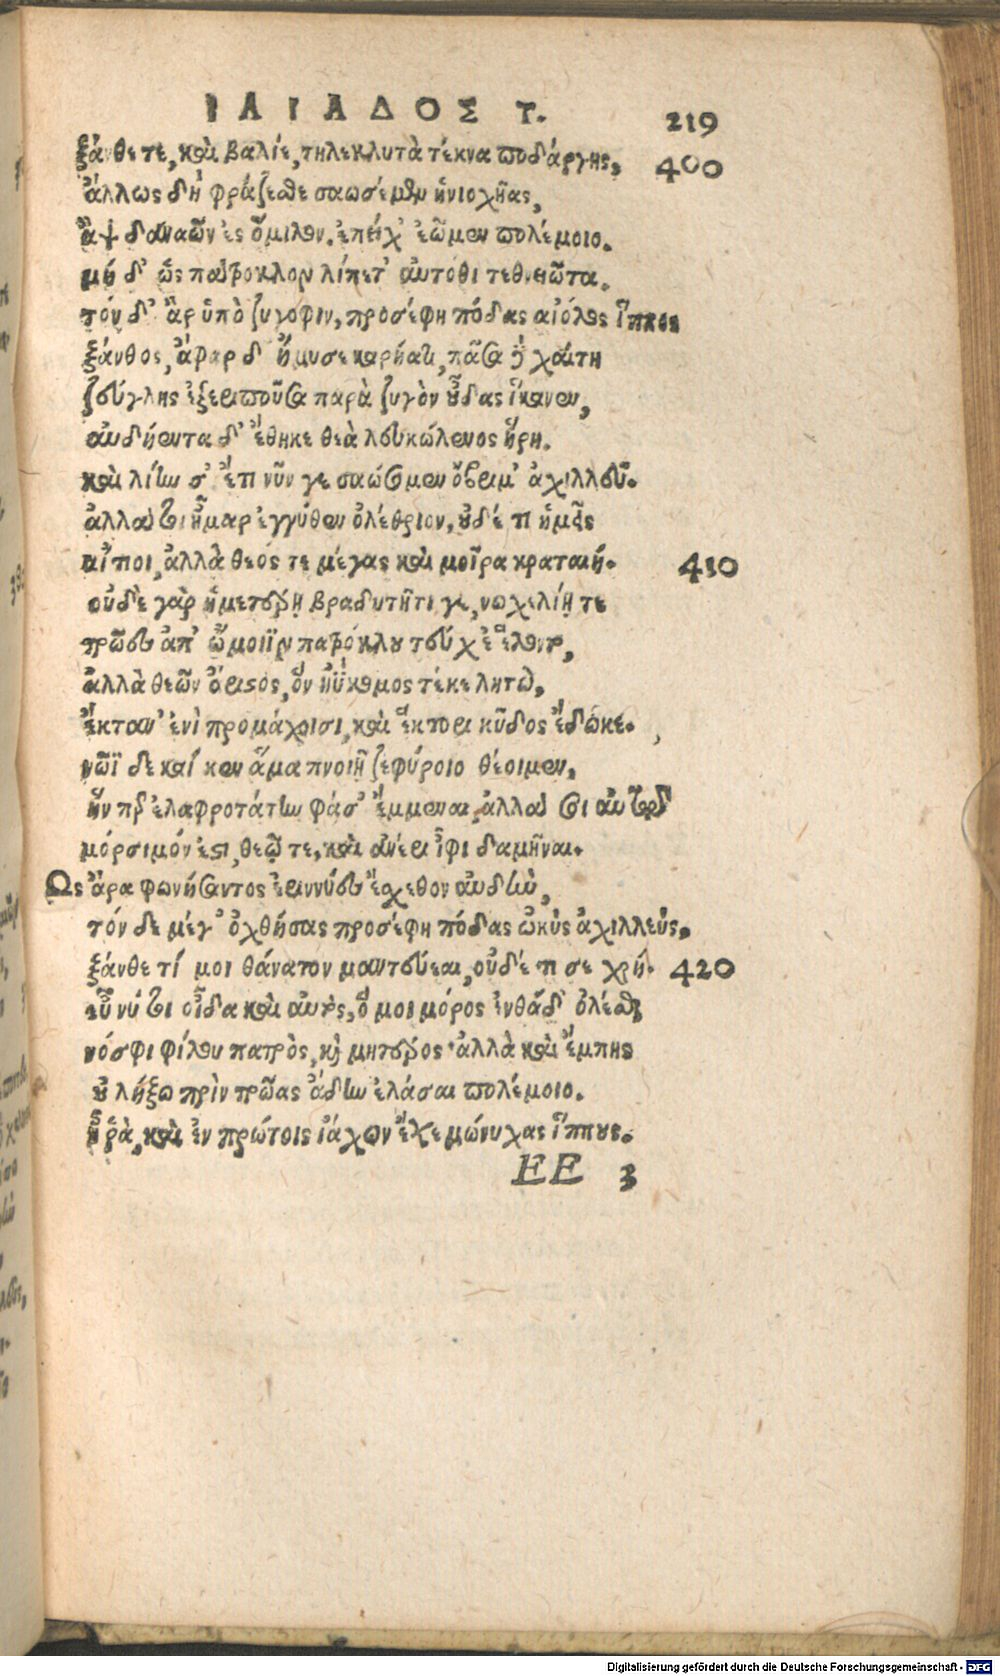 ΙΛΙΑΔΟΣ Τ. 219
ξάνθε τε, καὶ βαλίε, τηλεκλυτὰ τέκνα ποδάργης, 400
ἄλλως δὴ φράζεσθε σαωσέμεν ἡνιοχῆας,
ἂψ δαναῶν ἐς ὅμιλον. ἐπεί χ' ἑῶμεν πολέμοιο.
μὴ δ' ὡς πάτροκλον λίπετ' αὐτόθι τεθνειῶτα.
τόν δ' ἂρ ὑπὸ ζυγόφιν, προσέφη πόδας αἰόλος ἵππος
ξάνθος, ἄφαρ δ' ἤμυσε καρήατι, πᾶσα δὲ χαίτη
ζεύγλης ἐξεριποῦσα παρὰ ζυγὸν οὖδας ἵκανεν,
αὐδήεντα δ' ἔθηκε θεὰ λευκώλενος ἥρη.
καὶ λίην σ' ἔτι νῦν γε σαώσομεν ὄβριμ' ἀχιλλεῦ.
ἀλλά τοι ἦμαρ ἐγγύθεν ὀλέθριον, οὐδέ τι ἡμεῖς
αἴτιοι, ἀλλὰ θεός τε μέγας καὶ μοῖρα κραταιή. 410
οὐδὲ γὰρ ἡμετέρῃ βραδυτῆτί γε, νωχελίῃ τε
τρῶες ἀπ' ὤμοιϊν πατρόκλου τεύχε' ἕλοντο,
ἀλλὰ θεῶν ὤριστος, ὃν ἠΰκομος τέκε λητὼ,
ἔκταν' ἐνὶ προμάχοισι, καὶ ἕκτορι κῦδος ἔδωκε.
νῶϊ δὲ καί κεν ἅμα πνοιῇ ζεφύροιο θέοιμεν,
ἥν περ ἐλαφροτάτην φάσ' ἔμμεναι, ἀλλὰ σοι αὐτῷ
μόρσιμόν ἐστι, θεῷ τε, καὶ ἀνέρι ἶφι δαμῆναι.
Ως ἄρα φωνήσαντος ἐριννύες ἔσχεθον αὐδὴν,
τόν δὲ μέγ' ὀχθήσας προσέφη πόδας ὠκὺς ἀχιλλεύς.
ξάνθε τί μοι θάνατον μαντεύεαι, οὐδέ τί σε χρή. 420
εὖ νύ τοι οἶδα καὶ αὐτὸς, ὅ μοι μόρος ἐνθάδ' ὀλέσθαι
νόσφι φίλου πατρὸς, καὶ μητέρος· ἀλλὰ καὶ ἔμπης
οὐ λήξω πρὶν τρῶας ἅδην ἐλάσαι πολέμοιο.
ἦ ῥὰ, καὶ ἐν πρώτοις ἰάχων ἔχε μώνυχας ἵππους.
EE 3
Digitalisierung gefördert durch die Deutsche Forschungsgemeinschaft - DFG